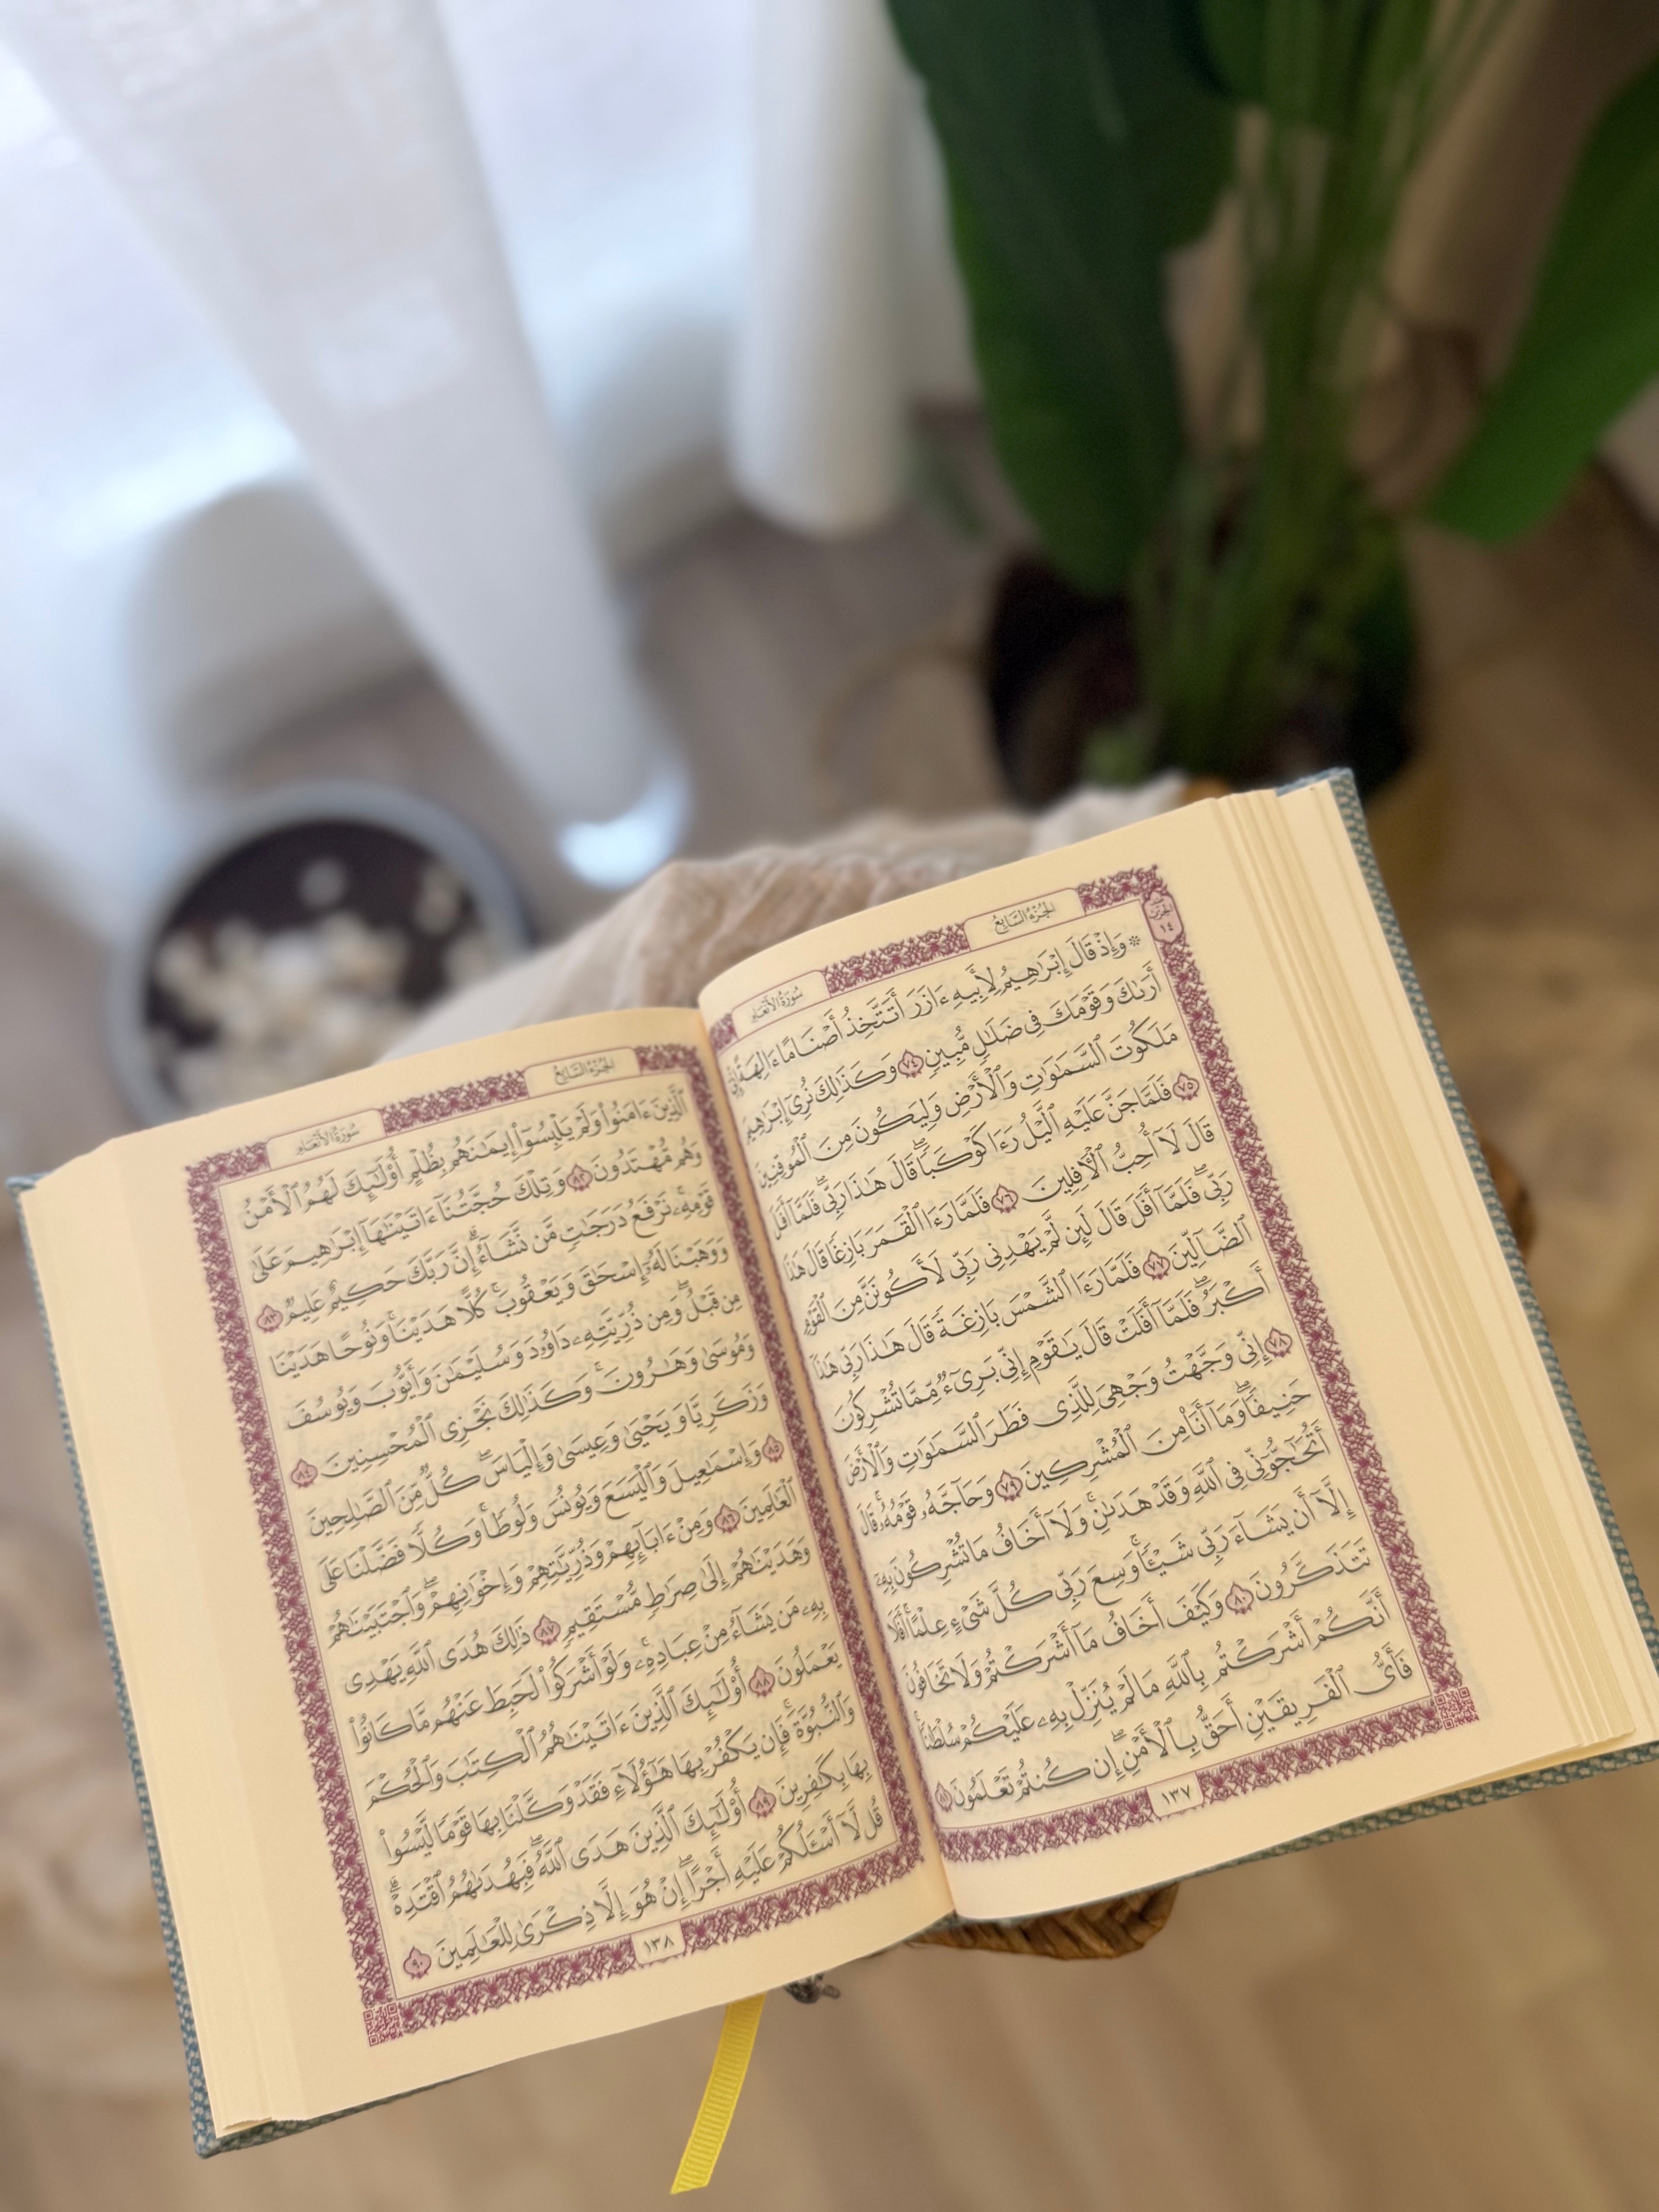 الجزء السابع
سورة الأنعام
الحزب
١٤
۞ وَإِذْ قَالَ إِبْرَٰهِيمُ لِأَبِيهِ ءَازَرَ أَتَتَّخِذُ أَصْنَامًا ءَالِهَةً إِنِّىٓ
أَرَىٰكَ وَقَوْمَكَ فِى ضَلَٰلٍ مُّبِينٍ ٧٤ وَكَذَٰلِكَ نُرِىٓ إِبْرَٰهِيمَ
مَلَكُوتَ ٱلسَّمَٰوَٰتِ وَٱلْأَرْضِ وَلِيَكُونَ مِنَ ٱلْمُوقِنِينَ
٧٥ فَلَمَّا جَنَّ عَلَيْهِ ٱلَّيْلُ رَءَا كَوْكَبًاۖ قَالَ هَٰذَا رَبِّىۖ فَلَمَّآ أَفَلَ
قَالَ لَآ أُحِبُّ ٱلْءَافِلِينَ ٧٦ فَلَمَّا رَءَا ٱلْقَمَرَ بَازِغًا قَالَ هَٰذَا
رَبِّىۖ فَلَمَّآ أَفَلَ قَالَ لَئِن لَّمْ يَهْدِنِى رَبِّى لَأَكُونَنَّ مِنَ ٱلْقَوْمِ
ٱلضَّآلِّينَ ٧٧ فَلَمَّا رَءَا ٱلشَّمْسَ بَازِغَةً قَالَ هَٰذَا رَبِّى هَٰذَآ
أَكْبَرُۖ فَلَمَّآ أَفَلَتْ قَالَ يَٰقَوْمِ إِنِّى بَرِىٓءٌ مِّمَّا تُشْرِكُونَ
٧٨ إِنِّى وَجَّهْتُ وَجْهِىَ لِلَّذِى فَطَرَ ٱلسَّمَٰوَٰتِ وَٱلْأَرْضَ
حَنِيفًاۖ وَمَآ أَنَا۠ مِنَ ٱلْمُشْرِكِينَ ٧٩ وَحَآجَّهُۥ قَوْمُهُۥۚ قَالَ
أَتُحَٰٓجُّوٓنِّى فِى ٱللَّهِ وَقَدْ هَدَىٰنِۚ وَلَآ أَخَافُ مَا تُشْرِكُونَ بِهِۦٓ
إِلَّآ أَن يَشَآءَ رَبِّى شَيْـًٔاۗ وَسِعَ رَبِّى كُلَّ شَىْءٍ عِلْمًاۗ أَفَلَا
تَتَذَكَّرُونَ ٨٠ وَكَيْفَ أَخَافُ مَآ أَشْرَكْتُمْ وَلَا تَخَافُونَ
أَنَّكُمْ أَشْرَكْتُم بِٱللَّهِ مَا لَمْ يُنَزِّلْ بِهِۦ عَلَيْكُمْ سُلْطَٰنًاۚ
فَأَىُّ ٱلْفَرِيقَيْنِ أَحَقُّ بِٱلْأَمْنِۖ إِن كُنتُمْ تَعْلَمُونَ ٨١
١٣٧
الجزء السابع
سورة الأنعام
ٱلَّذِينَ ءَامَنُوا۟ وَلَمْ يَلْبِسُوٓا۟ إِيمَٰنَهُم بِظُلْمٍ أُو۟لَٰٓئِكَ لَهُمُ ٱلْأَمْنُ
وَهُم مُّهْتَدُونَ ٨٢ وَتِلْكَ حُجَّتُنَآ ءَاتَيْنَٰهَآ إِبْرَٰهِيمَ عَلَىٰ
قَوْمِهِۦۚ نَرْفَعُ دَرَجَٰتٍ مَّن نَّشَآءُۗ إِنَّ رَبَّكَ حَكِيمٌ عَلِيمٌ ٨٣
وَوَهَبْنَا لَهُۥٓ إِسْحَٰقَ وَيَعْقُوبَۚ كُلًّا هَدَيْنَاۚ وَنُوحًا هَدَيْنَا
مِن قَبْلُۖ وَمِن ذُرِّيَّتِهِۦ دَاوُۥدَ وَسُلَيْمَٰنَ وَأَيُّوبَ وَيُوسُفَ
وَمُوسَىٰ وَهَٰرُونَۚ وَكَذَٰلِكَ نَجْزِى ٱلْمُحْسِنِينَ ٨٤
وَزَكَرِيَّا وَيَحْيَىٰ وَعِيسَىٰ وَإِلْيَاسَۖ كُلٌّ مِّنَ ٱلصَّٰلِحِينَ
٨٥ وَإِسْمَٰعِيلَ وَٱلْيَسَعَ وَيُونُسَ وَلُوطًاۚ وَكُلًّا فَضَّلْنَا عَلَى
ٱلْعَٰلَمِينَ ٨٦ وَمِنْ ءَابَآئِهِمْ وَذُرِّيَّٰتِهِمْ وَإِخْوَٰنِهِمْۖ وَٱجْتَبَيْنَٰهُمْ
وَهَدَيْنَٰهُمْ إِلَىٰ صِرَٰطٍ مُّسْتَقِيمٍ ٨٧ ذَٰلِكَ هُدَى ٱللَّهِ يَهْدِى
بِهِۦ مَن يَشَآءُ مِنْ عِبَادِهِۦۚ وَلَوْ أَشْرَكُوا۟ لَحَبِطَ عَنْهُم مَّا كَانُوا۟
يَعْمَلُونَ ٨٨ أُو۟لَٰٓئِكَ ٱلَّذِينَ ءَاتَيْنَٰهُمُ ٱلْكِتَٰبَ وَٱلْحُكْمَ
وَٱلنُّبُوَّةَۚ فَإِن يَكْفُرْ بِهَا هَٰٓؤُلَآءِ فَقَدْ وَكَّلْنَا بِهَا قَوْمًا لَّيْسُوا۟
بِهَا بِكَٰفِرِينَ ٨٩ أُو۟لَٰٓئِكَ ٱلَّذِينَ هَدَى ٱللَّهُۖ فَبِهُدَىٰهُمُ ٱقْتَدِهْۗ
قُل لَّآ أَسْـَٔلُكُمْ عَلَيْهِ أَجْرًاۖ إِنْ هُوَ إِلَّا ذِكْرَىٰ لِلْعَٰلَمِينَ ٩٠
١٣٨